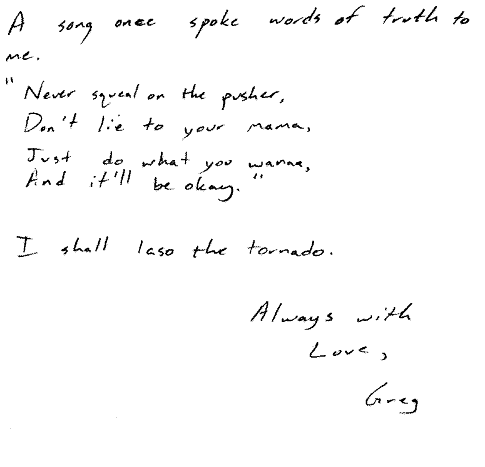 A song once spoke words of truth to
me.
"Never squeal on the pusher,
Don't lie to your mama,
Just do what you wanna,
And it'll be okay."
I shall laso the tornado.
Always with
Love,
Greg